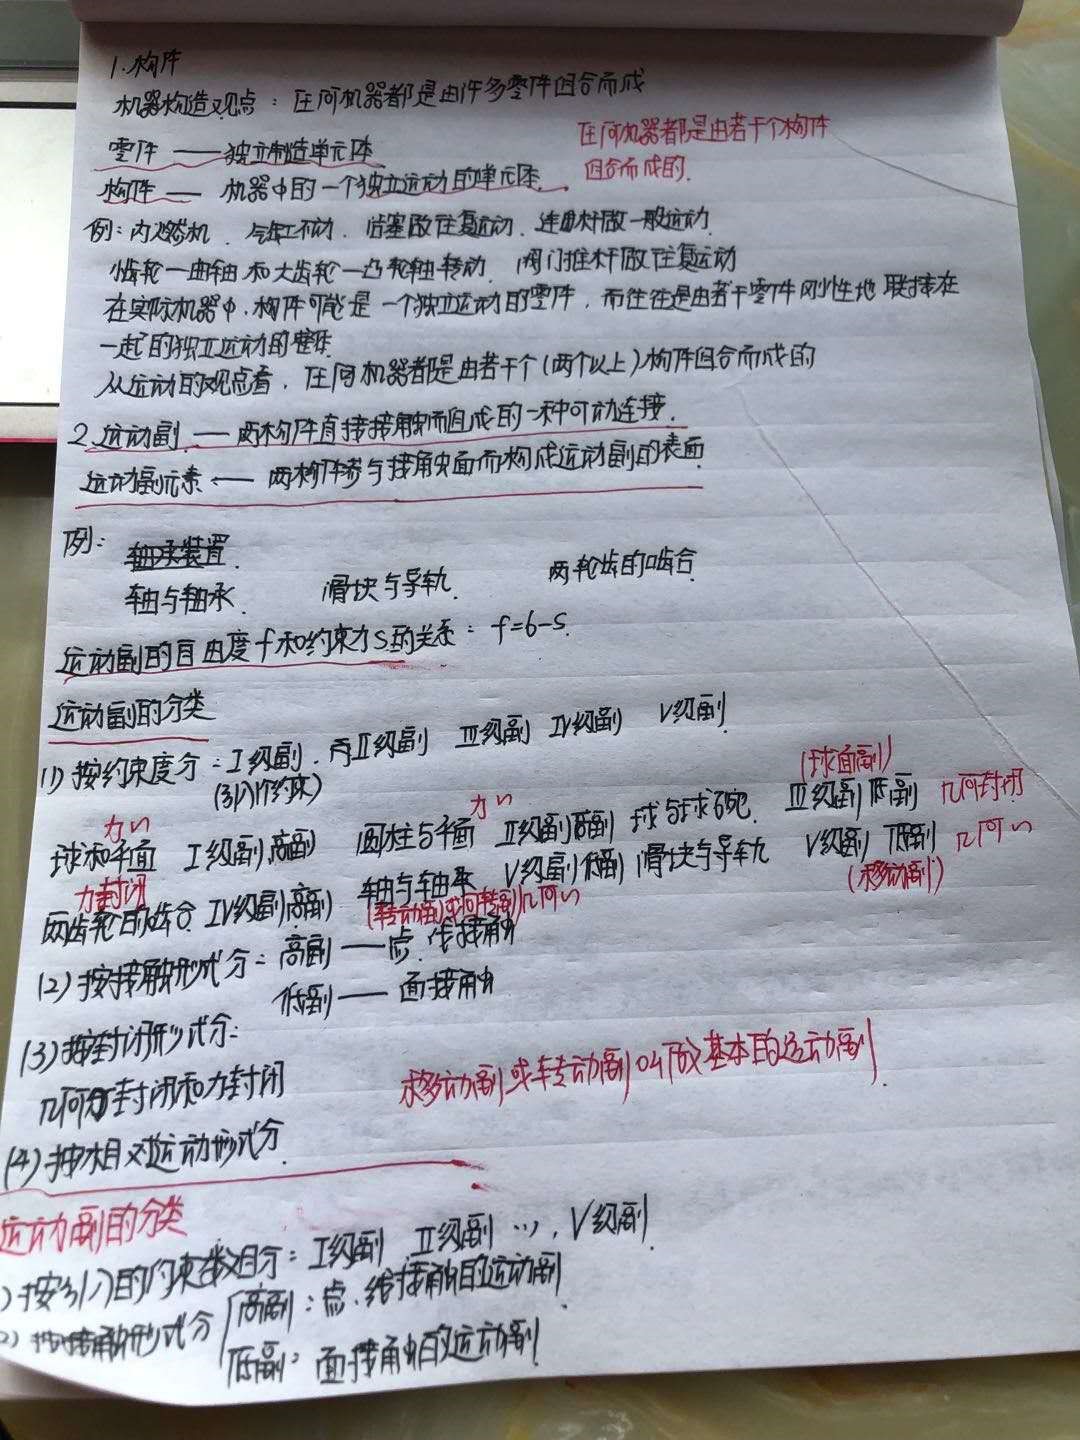 1.构件
机器构造观点：任何机器都是由许多零件组合而成
任何机器都是由若干个构件
组合而成的.
零件 —— 独立制造单元体
构件 —— 机器中的一个独立运动的单元体.
例：内燃机、气缸不动、活塞做往复运动、连曲杆做一般运动.
小齿轮一曲轴和大齿轮一凸轮轴转动. 阀门推杆做往复运动
在实际机器中，构件可能是一个独立运动的零件，而往往是由若干零件刚性地联接在
一起的独立运动的整体.
从运动的观点看，任何机器都是由若干个(两个以上)构件组合而成的
2.运动副 —— 两构件直接接触而组成的一种可动连接.
运动副元素 —— 两构件参与接触面而构成运动副的表面.
例：
轴承装置.
轴与轴承. 滑块与导轨. 两轮齿的啮合.
运动副的自由度f和约束力S的关系：f=6-S.
运动副的分类
(1) 按约束度分：I级副. II级副 III级副 IV级副 V级副
(引入个约束)
(球面副)
力〃 力〃
球和平面 I级副,高副 圆柱与平面 II级副高副 球与球碗. III级副低副 几何封闭
力封闭
两齿轮的啮合. IV级副,高副 轴与轴承 V级副低副 滑块与导轨 V级副 低副 几何〃
(转动副或回转副)几何〃 (移动副)
(2) 按接触形式分：高副 —— 点、线接触
低副 —— 面接触
(3) 按封闭形式分：
几何封闭和力封闭
移动副或转动副叫做基本的运动副.
(4) 按相对运动形式分.
运动副的分类
)按引入的约束数目分：I级副、II级副 …, V级副.
2)按接触形式分 高副：点、线接触的运动副
低副：面接触的运动副.